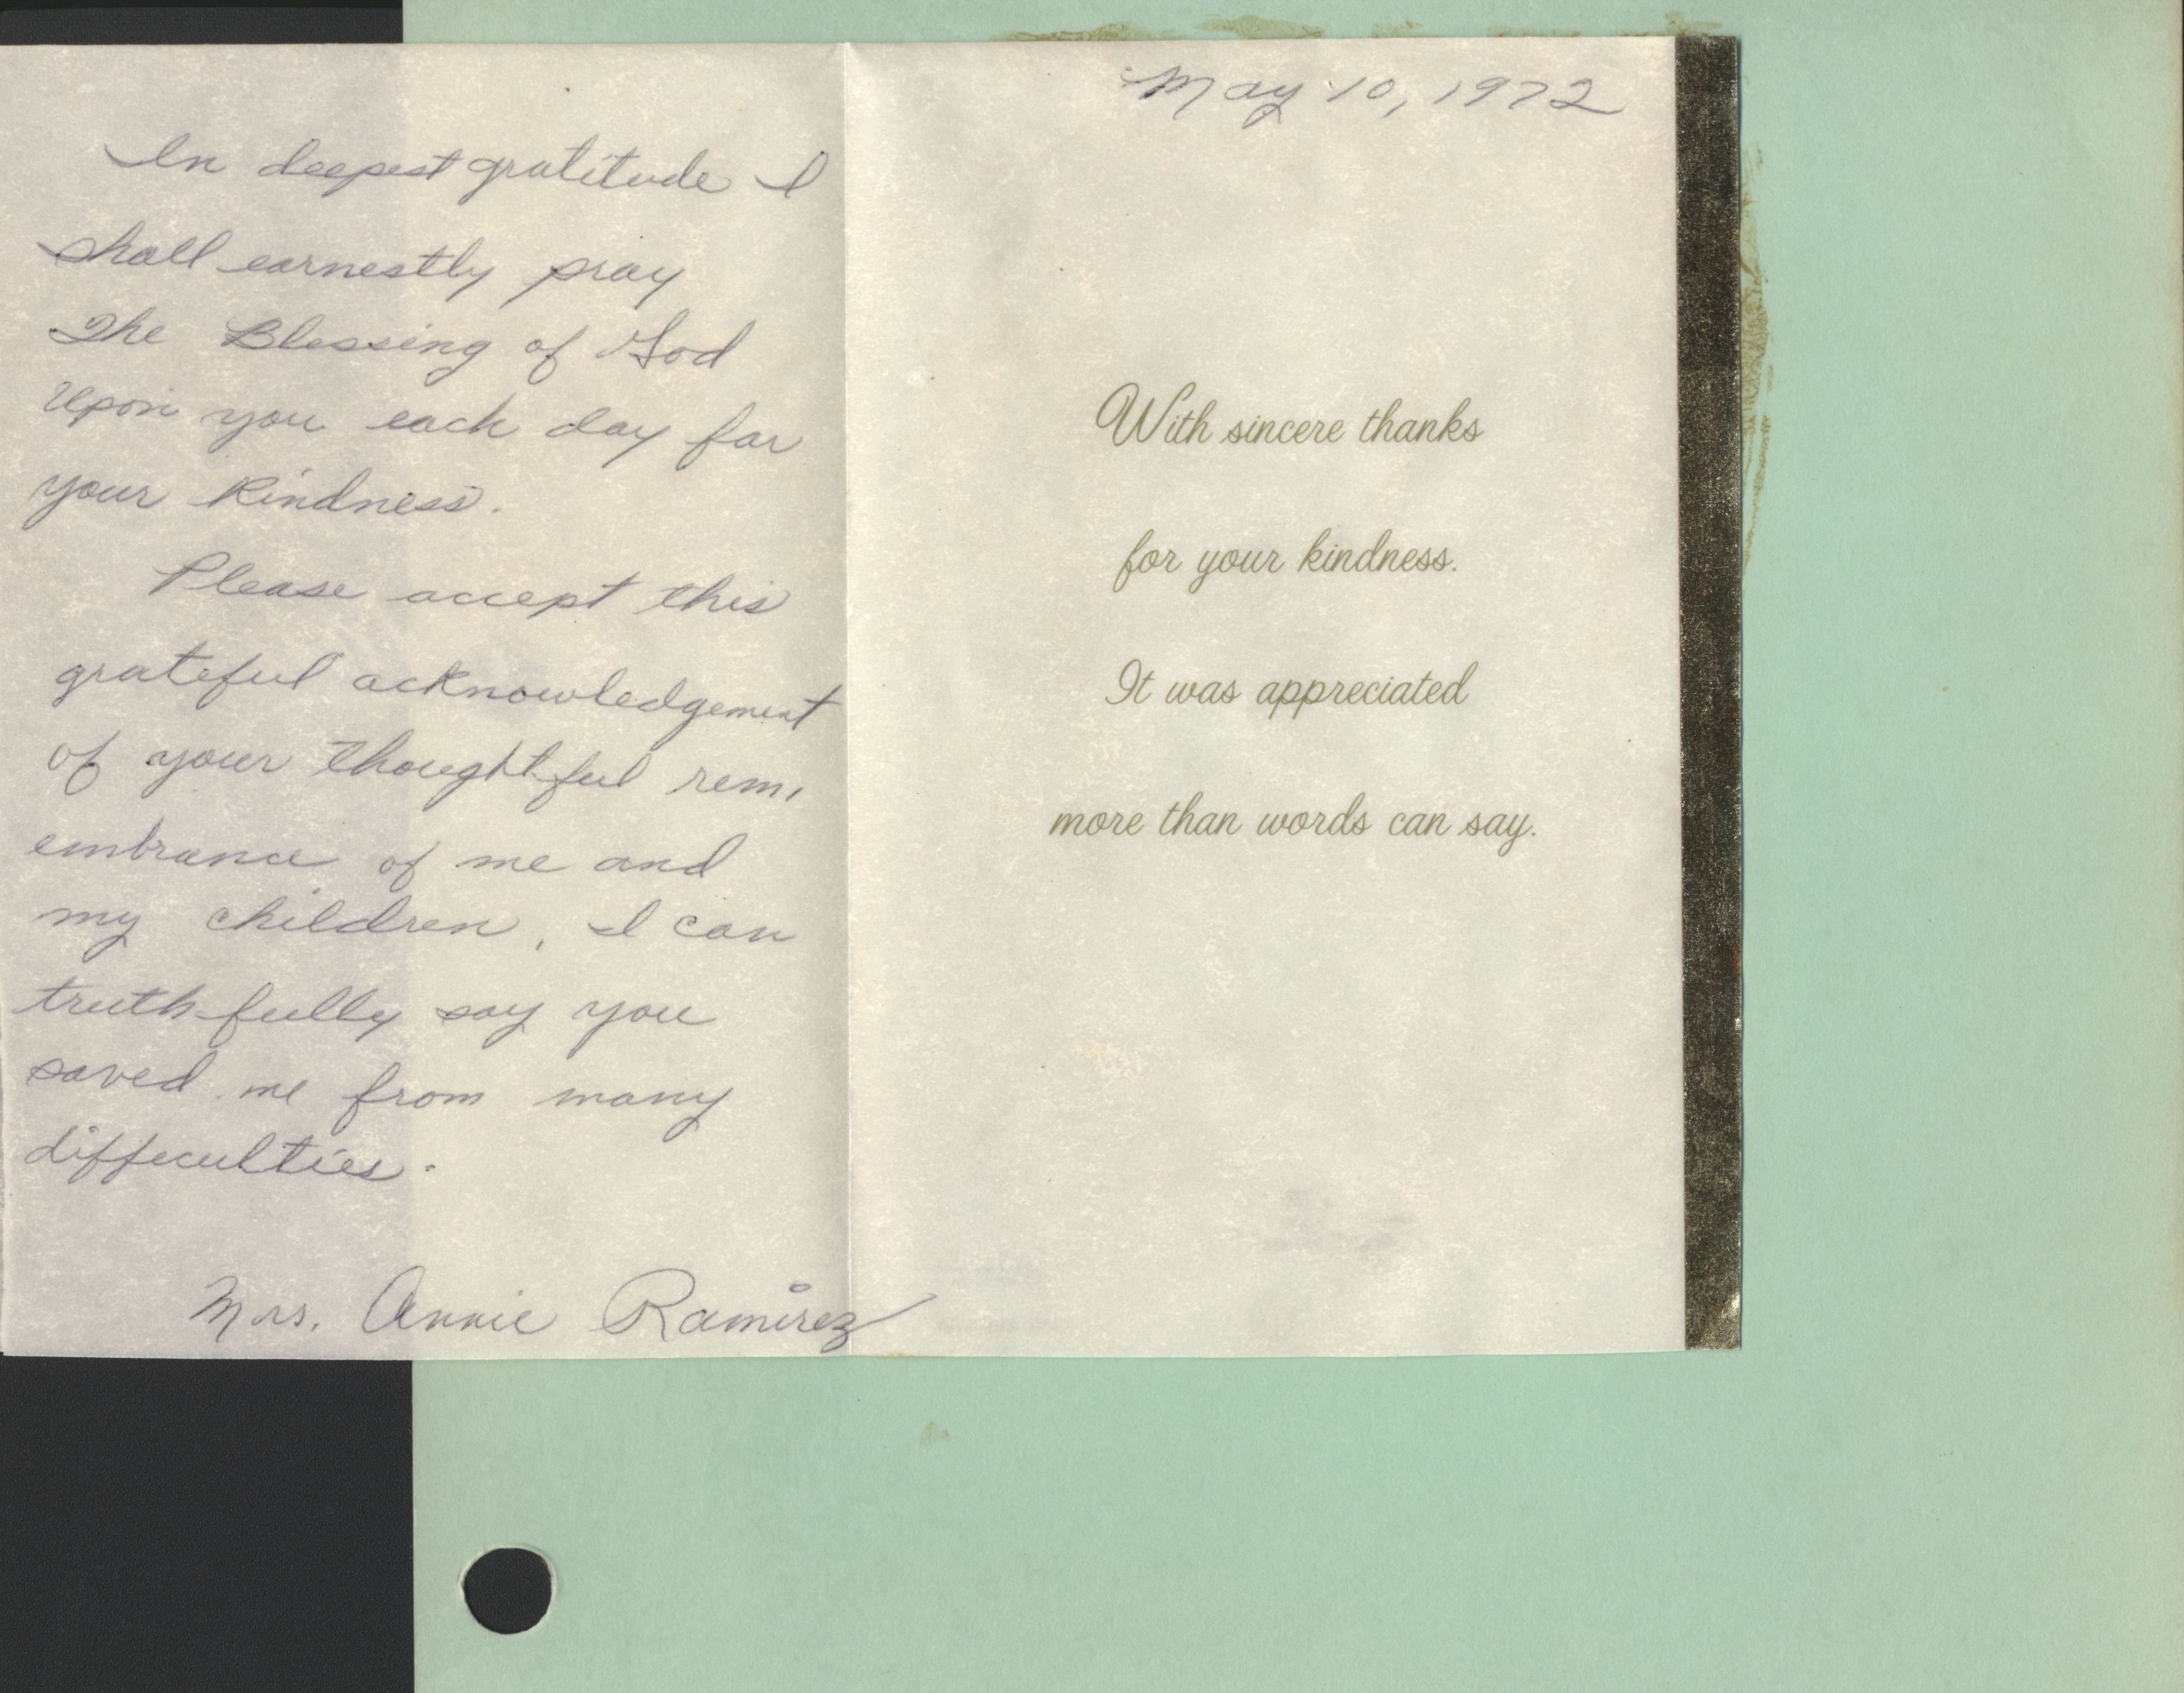 In deepest gratitude I
shall earnestly pray
The Blessing of God
Upon you each day for
your kindness.
Please accept this
grateful acknowledgement
of your thoughtful rem,
embrance of me and
my children, I can
truthfully say you
saved me from many
difficulties.
Mrs. Annie Ramirez
May 10, 1972
With sincere thanks
for your kindness.
It was appreciated
more than words can say.